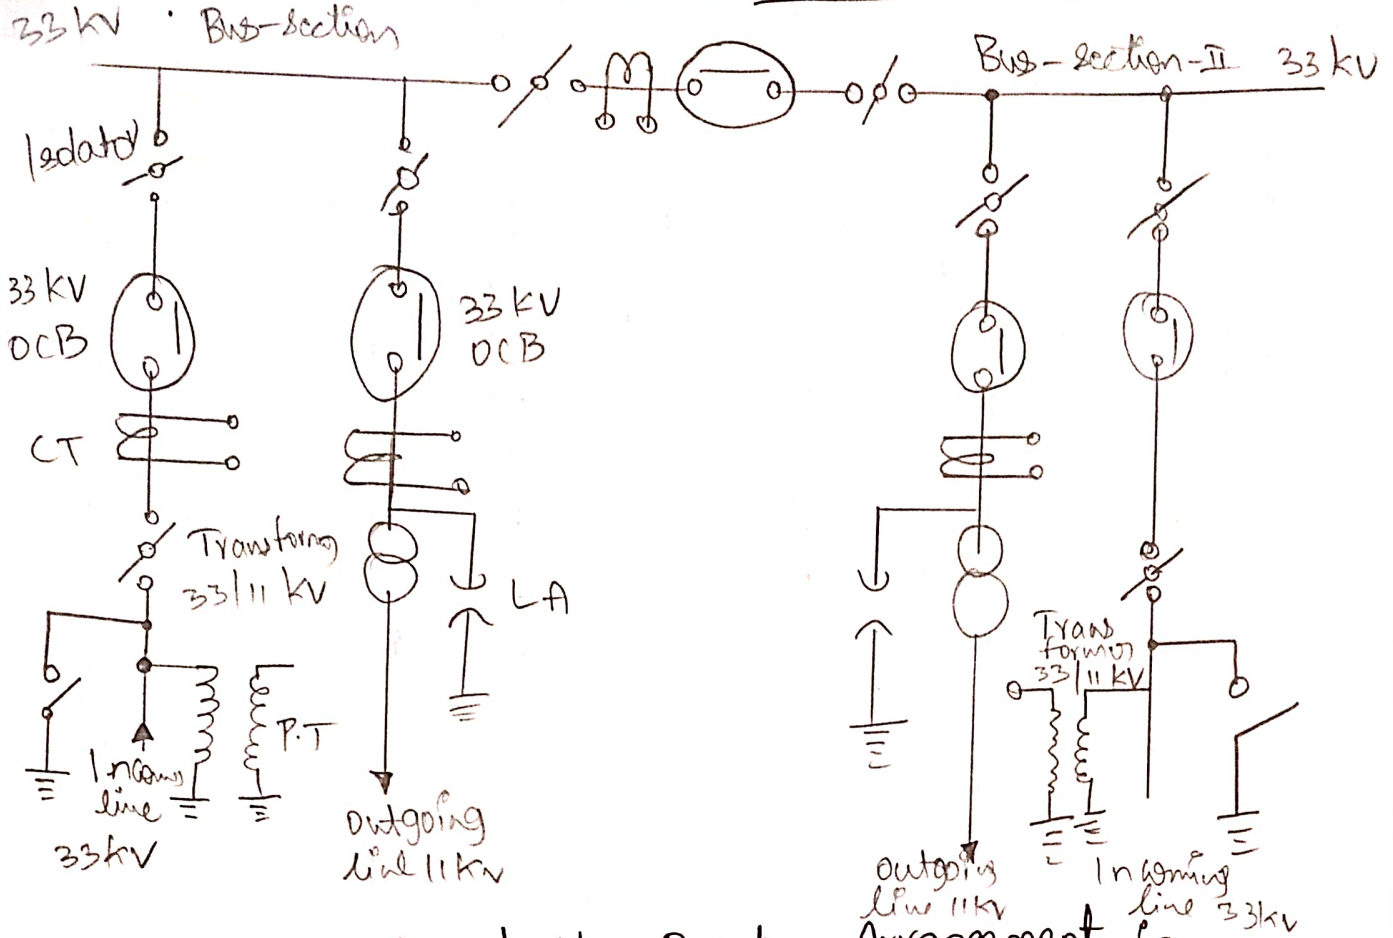 33 kV Bus-section
Bus-section-II 33 kV
Isolator
33 KV
OCB
33 KV
OCB
CT
Transformer
33/11 kV
LA
P.T
Incoming
line
33kV
outgoing
line 11 kV
Trans
former
33/11 kV
outgoing
line 11kV
Incoming
line 33kV
Arrangement